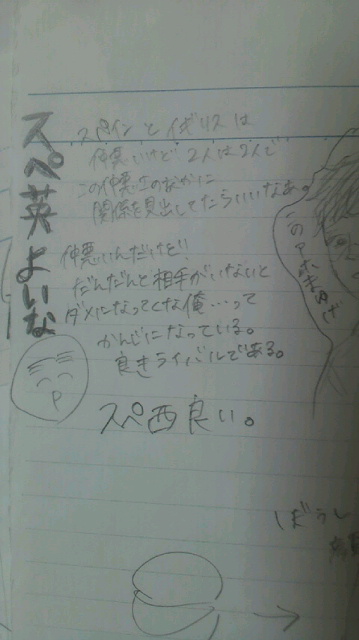 スペ英よいな
スペインとイギリスは
仲悪いけど2人は2人で
この仲悪さのなかに
関係を見出してたらいいなあ。
仲悪いんだけど!
だんだんと相手がいないと
ダメになってくな俺…って
かんじになっている。
良きライバルである。
スペ西良い。
しばうし